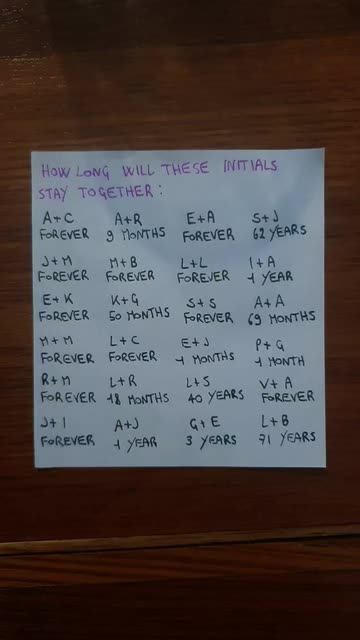 HOW LONG WILL THESE INITIALS
STAY TOGETHER:
A+C A+R E+A S+J
FOREVER 9 MONTHS FOREVER 62 YEARS
J+M M+B L+L I+A
FOREVER FOREVER FOREVER 1 YEAR
E+K K+G S+S A+A
FOREVER 50 MONTHS FOREVER 69 MONTHS
M+M L+C E+J P+G
FOREVER FOREVER 1 MONTHS 1 MONTH
R+M L+R L+S V+A
FOREVER 18 MONTHS 40 YEARS FOREVER
J+I A+J G+E L+B
FOREVER 1 YEAR 3 YEARS 71 YEARS